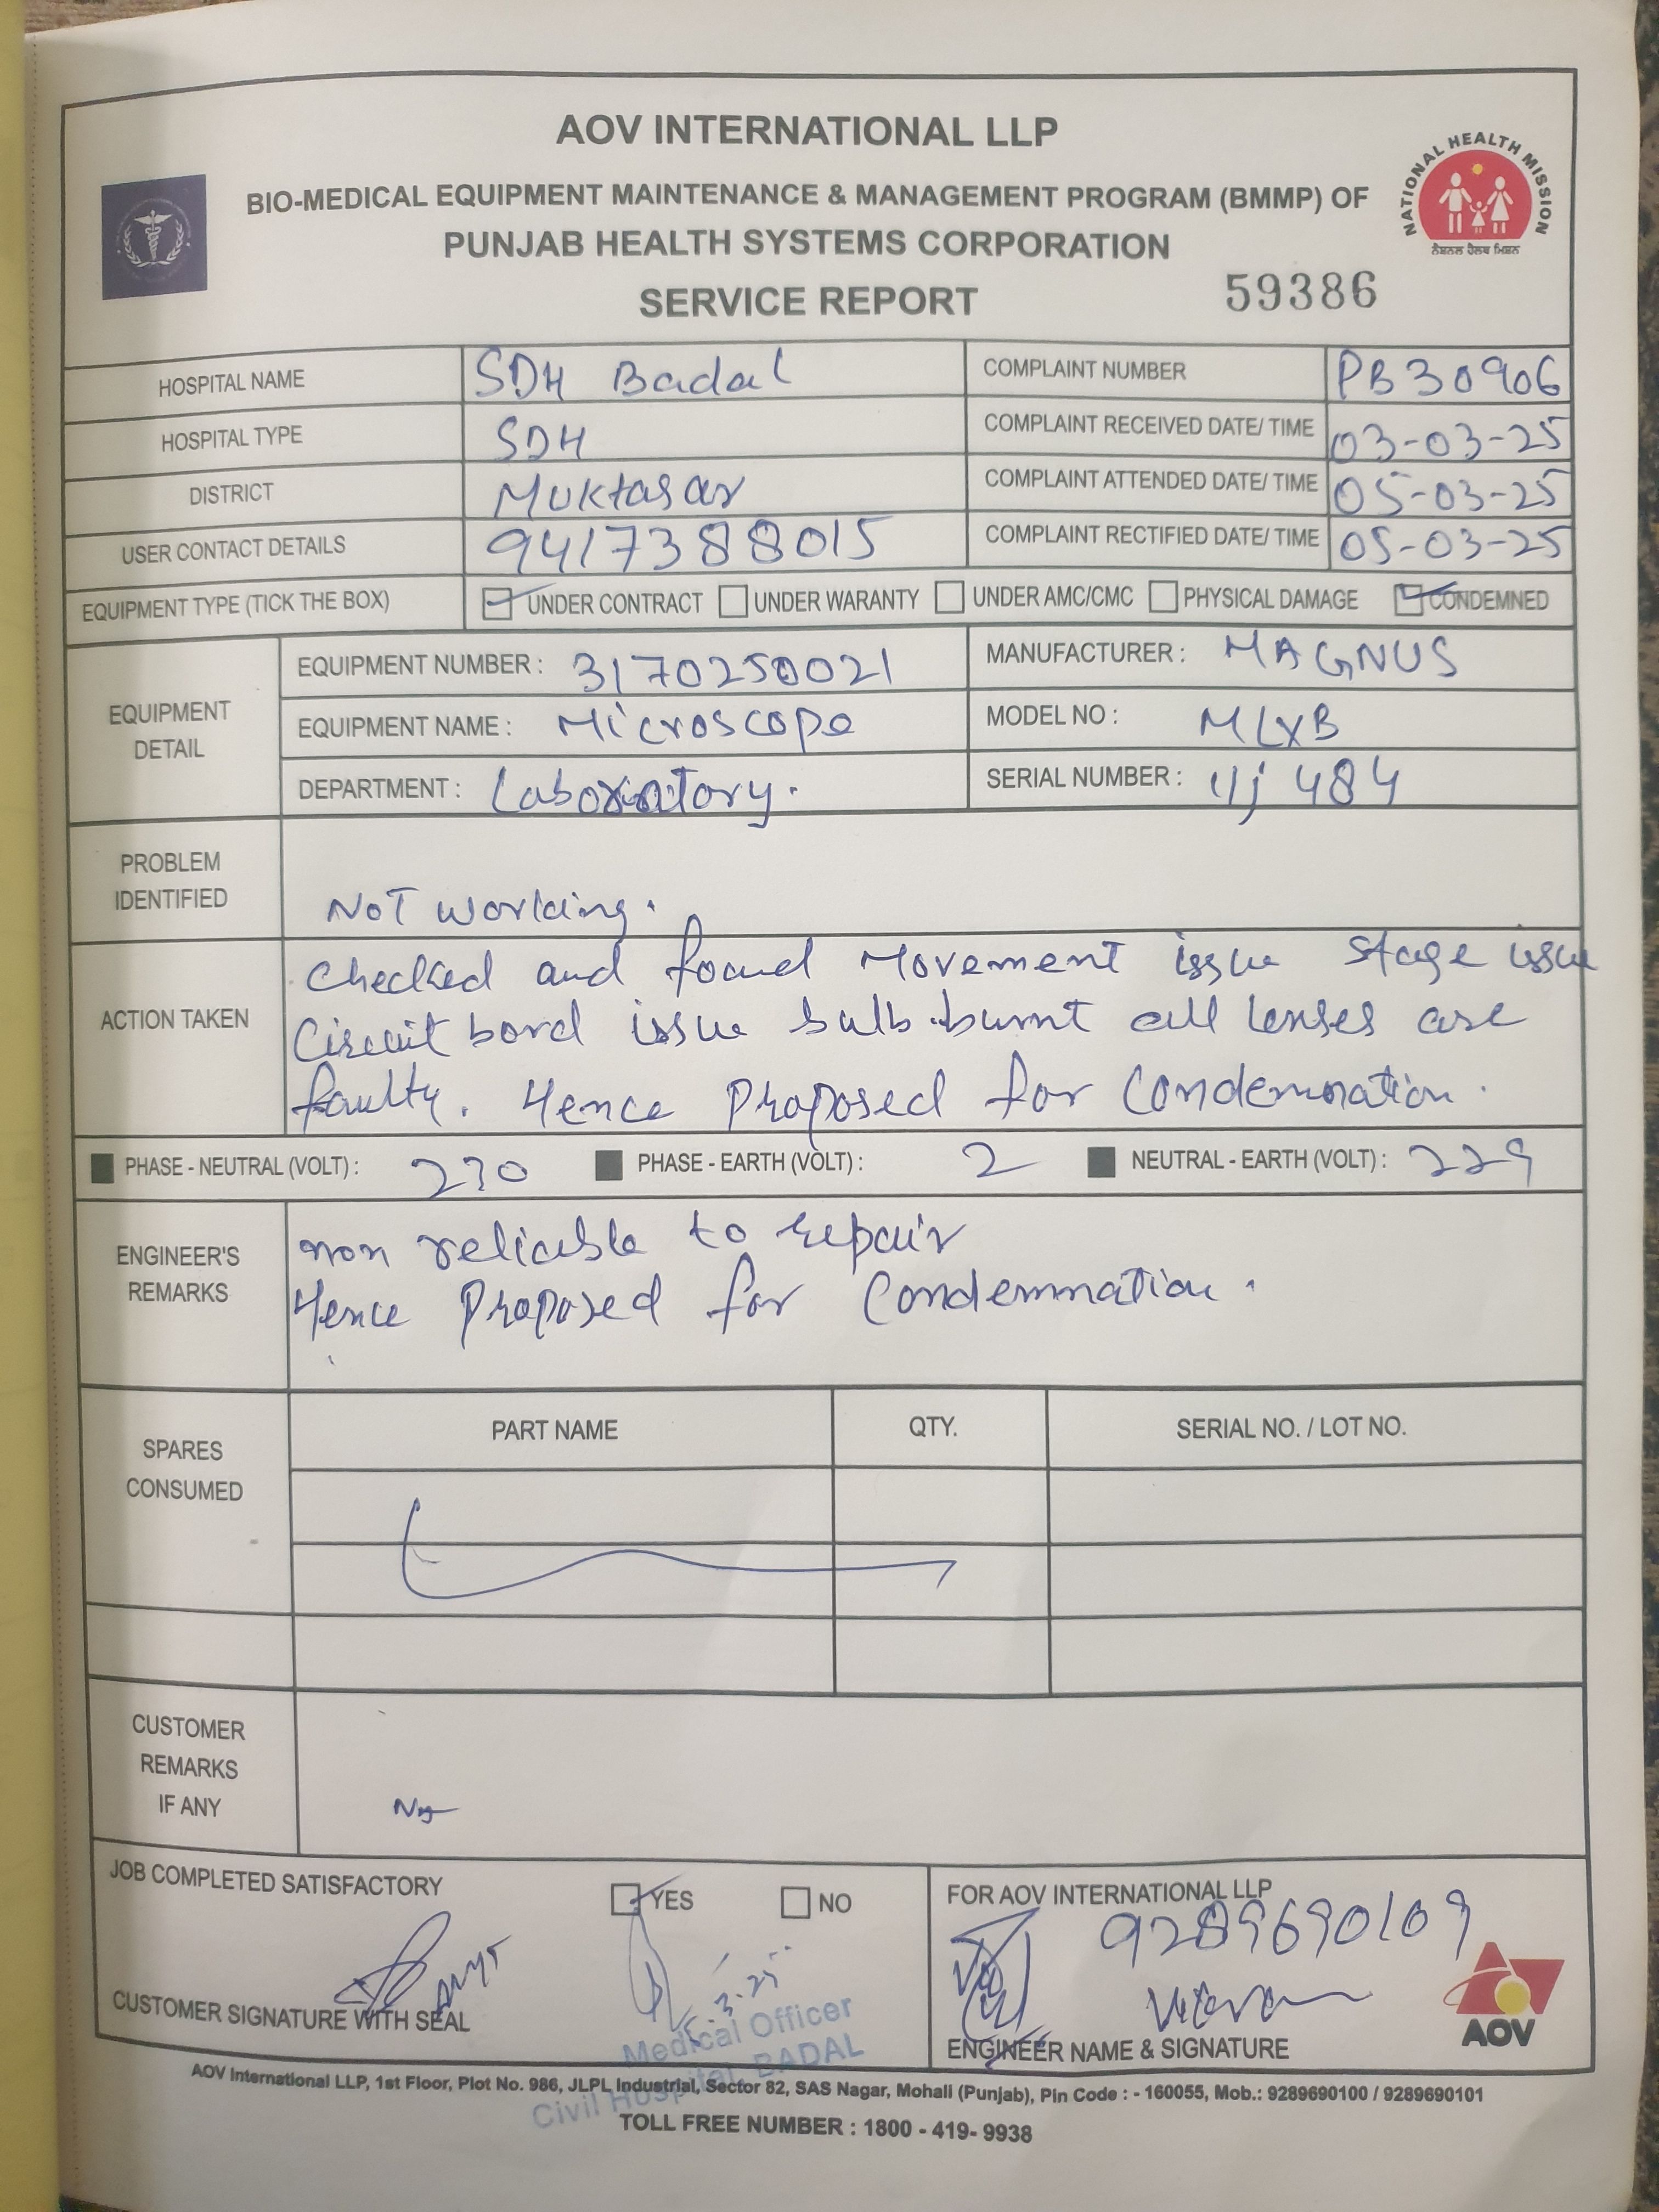 AOV INTERNATIONAL LLP
BIO-MEDICAL EQUIPMENT MAINTENANCE & MANAGEMENT PROGRAM (BMMP) OF
PUNJAB HEALTH SYSTEMS CORPORATION
SERVICE REPORT 59386
NATIONAL HEALTH MISSION
ਨੈਸ਼ਨਲ ਹੈਲਥ ਮਿਸ਼ਨ
HOSPITAL NAME SDH Badal COMPLAINT NUMBER PB30906
HOSPITAL TYPE SDH COMPLAINT RECEIVED DATE/ TIME 03-03-25
DISTRICT Muktasar COMPLAINT ATTENDED DATE/ TIME 05-03-25
USER CONTACT DETAILS 9417388015 COMPLAINT RECTIFIED DATE/ TIME 05-03-25
EQUIPMENT TYPE (TICK THE BOX) UNDER CONTRACT UNDER WARANTY UNDER AMC/CMC PHYSICAL DAMAGE CONDEMNED
EQUIPMENT DETAIL
EQUIPMENT NUMBER : 3170250021 MANUFACTURER : MAGNUS
EQUIPMENT NAME : Microscope MODEL NO : MLXB
DEPARTMENT : Laboratory. SERIAL NUMBER : 11j 484
PROBLEM IDENTIFIED
NOT working.
ACTION TAKEN
Checked and found Movement issue stage issue
Circuit bord issue bulb burnt all lenses are
faulty. Hence Proposed for Condemnation.
PHASE - NEUTRAL (VOLT) : 230 PHASE - EARTH (VOLT) : 2 NEUTRAL - EARTH (VOLT) : 229
ENGINEER'S REMARKS
non reliable to repair
Hence Proposed for Condemnation.
SPARES CONSUMED
PART NAME QTY. SERIAL NO. / LOT NO.
CUSTOMER REMARKS IF ANY
JOB COMPLETED SATISFACTORY YES NO
FOR AOV INTERNATIONAL LLP
9289690109
CUSTOMER SIGNATURE WITH SEAL
Medical Officer
Civil Hospital, BADAL
ENGINEER NAME & SIGNATURE
AOV
AOV International LLP, 1st Floor, Plot No. 986, JLPL Industrial, Sector 82, SAS Nagar, Mohali (Punjab), Pin Code : - 160055, Mob.: 9289690100 / 9289690101
TOLL FREE NUMBER : 1800 - 419- 9938